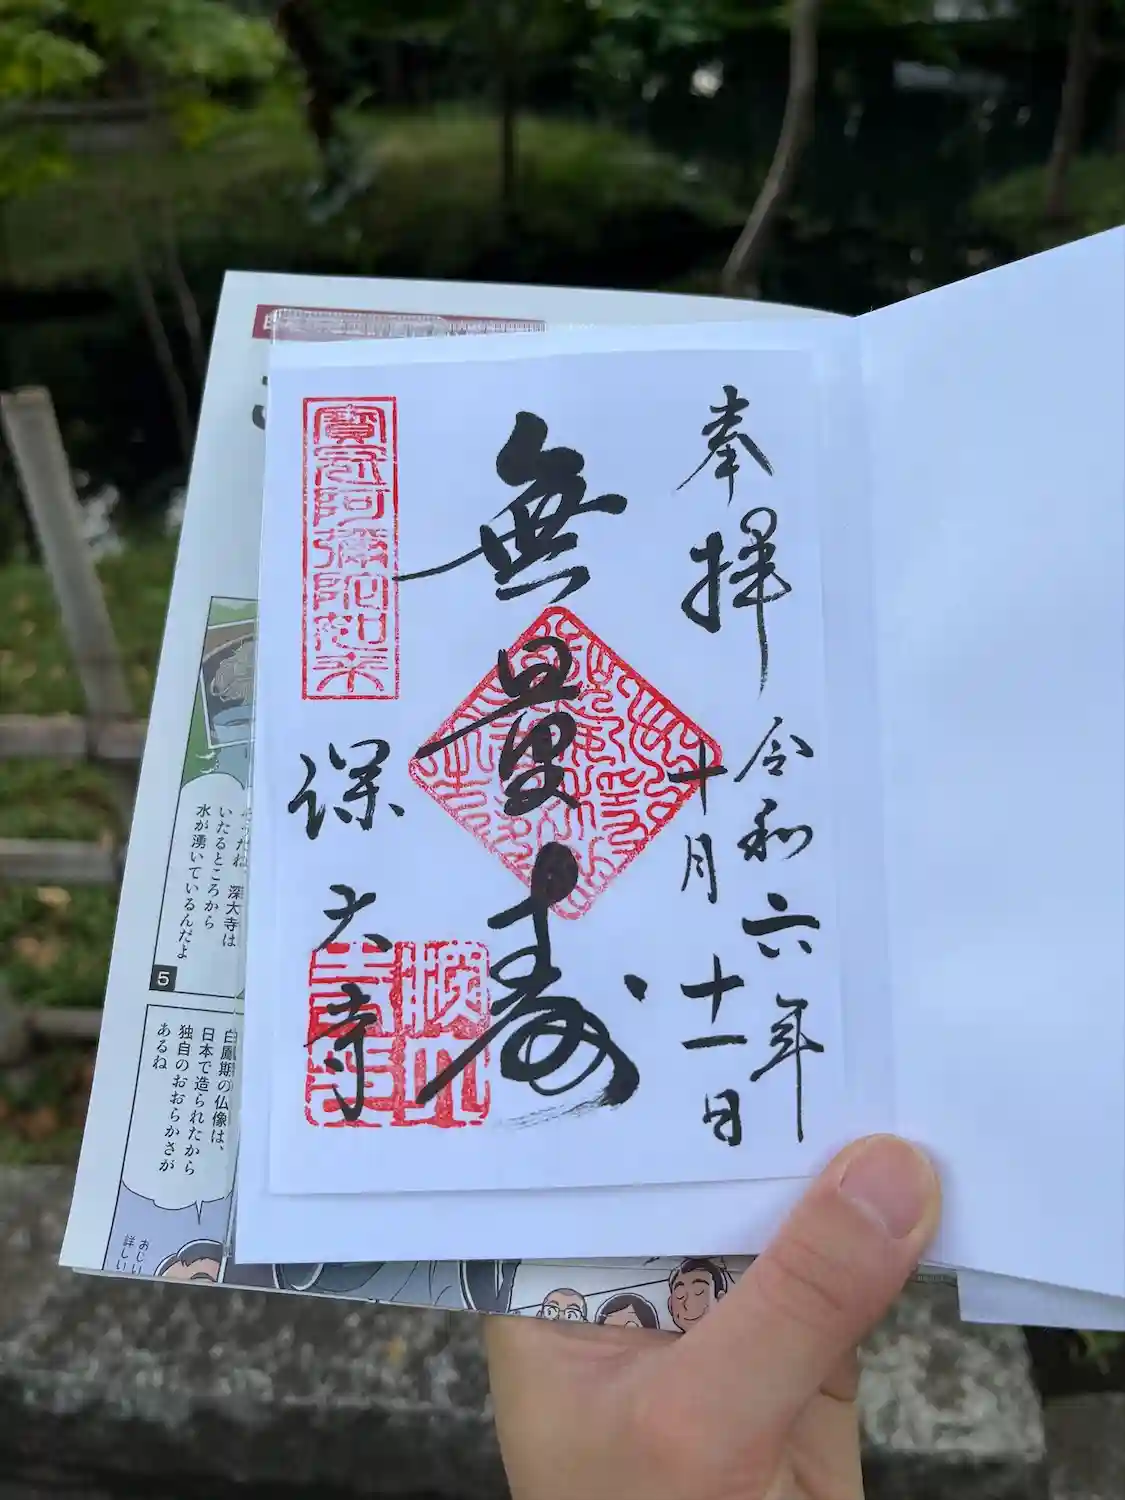 奉拝
令和六年
十月十一日
無量寿
寳冠阿彌陀如来
深大寺
そうだね、深大寺は
いたるところから
水が湧いているんだよ
5
白鳳期の仏像は、
日本で造られたから
独自のおおらかさが
あるね